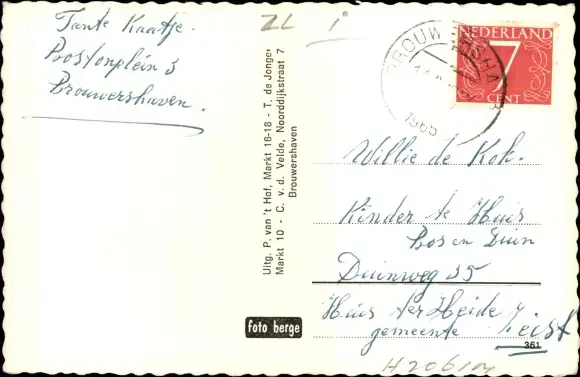 Tante Kaatje.
Bostonplein 3
Brouwershaven.
ZL i
BROUWERSHAVEN
1965
NEDERLAND
7
CENT
Uitg. P. van 't Hof, Markt 16-18 - T. de Jonge,
Markt 10 - C. v. d. Velde, Noorddijkstraat 7
Brouwershaven
Willie de Kok.
Kinder te Huis
Bos en Duin
Duinweg 35
Huis ter Heide
gemeente Zeist
foto berge
361
H2061m